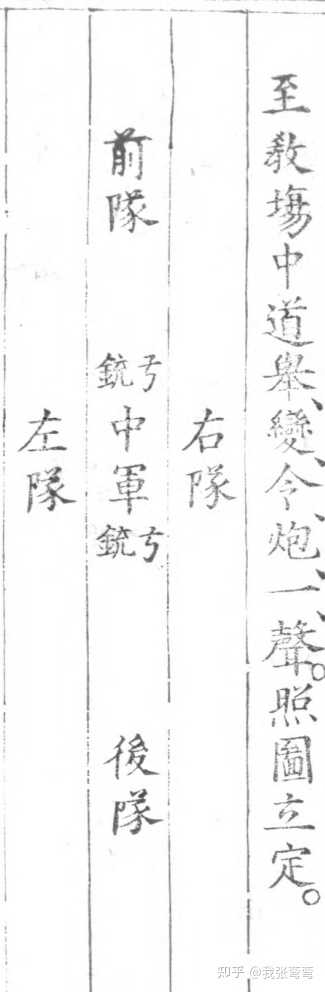 至敎塲中道舉變令炮一聲。照圖立定。
右隊
前隊
丂銃
中軍
丂銃
後隊
左隊
知乎 @我张弯弯